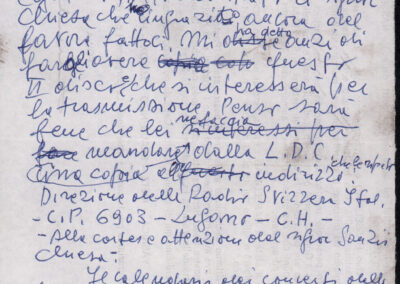 Chiesa che ringrazio ancora del
favore fattoci. Mi ha detto anzi di
fargli avere copia con questo
II disco, che si interesserà per
la trasmissione. Penso sarà
bene che lei ne faccia si interessi per
mandare dalla L.D.C.
una copia all' indirizzo
Direzione della Radio Svizzera Ital.
- C.P. 6903 - Lugano - C.H. -
- alla cortese attenzione del signor
Chiesa -
Il calendario dei concerti della